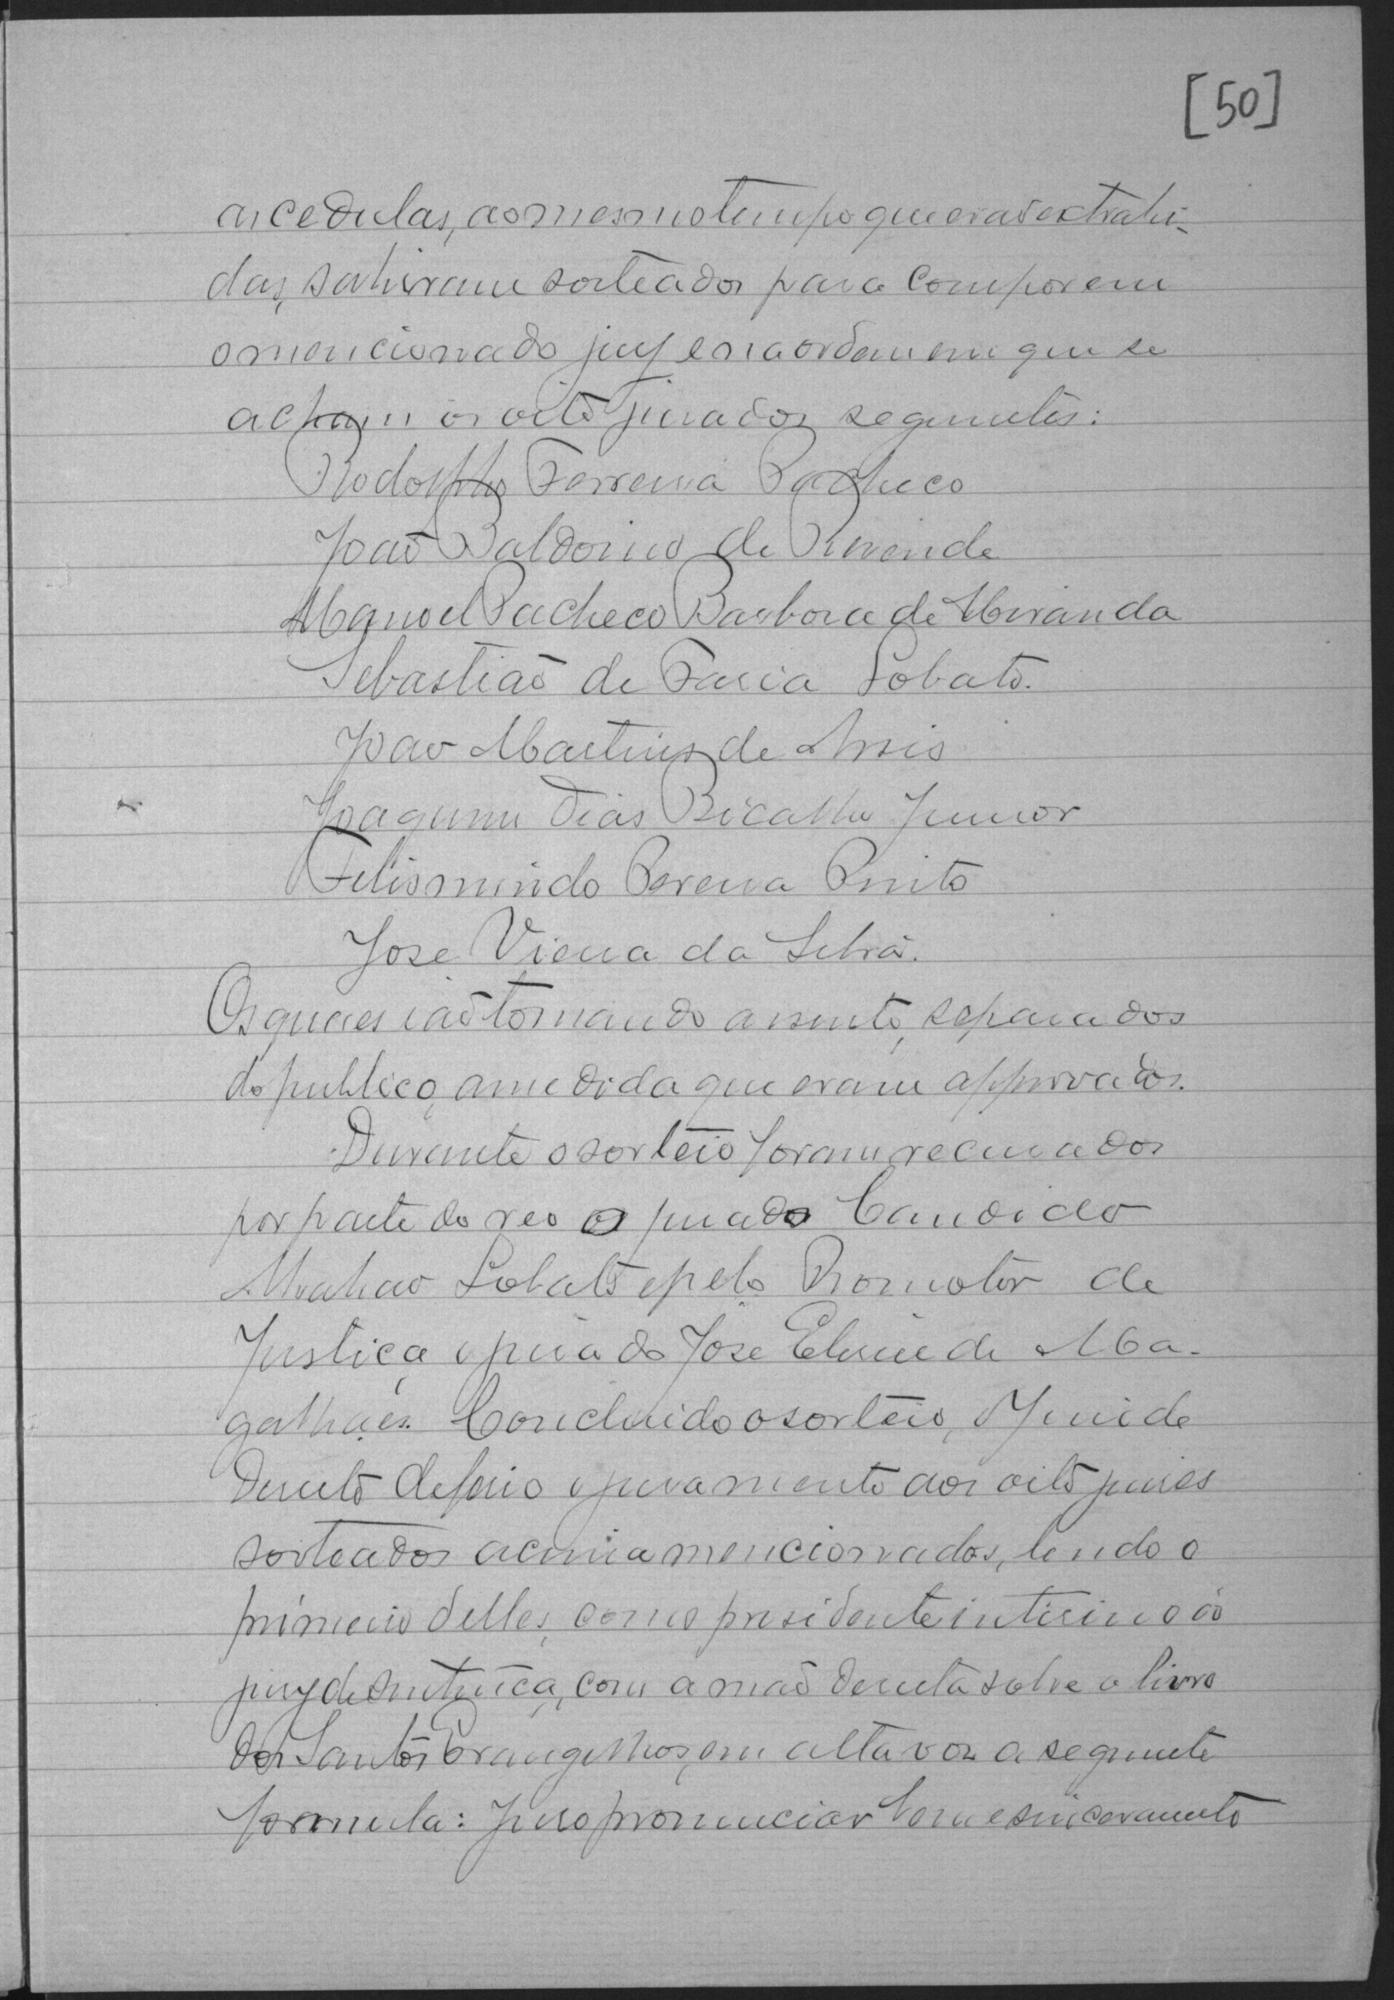 [50]
as cedulas, ao mesmo tempo que eraõ extrahi-
das, sahiram sorteados para comporem
o mencionado jury e na ordem em que se
acham os oito jurados seguintes:
Rodolpho Ferreira Pacheco
Joaõ Baldoino de Rezende
Manoel Pacheco Barbosa de Miranda
Sebastiaõ de Faria Lobato.
João Martins de Assis
Joaquim Dias Bicalho Junior
Felismindo Pereira Pinto
Jose Vieira da Silva.
Os quaes iaõ tomando assento, separados
do publico, a medida que eram approvados.
Durante o sorteio foram recusados
por parte do reo o jurado Candido
Abrahão Lobato e pelo Promotor de
Justiça o jurado José de Ma-
galhães. Concluido o sorteio, o Juiz de
Direito deferio o juramento aos oito juizes
sorteados acima mencionados, lendo o
primeiro delles, como presidente interino do
jury de sentença, com a maõ direita sobre o livro
dos Santos Evangelhos, em alta voz a seguinte
formula: Juro pronunciar bem e sinceramente